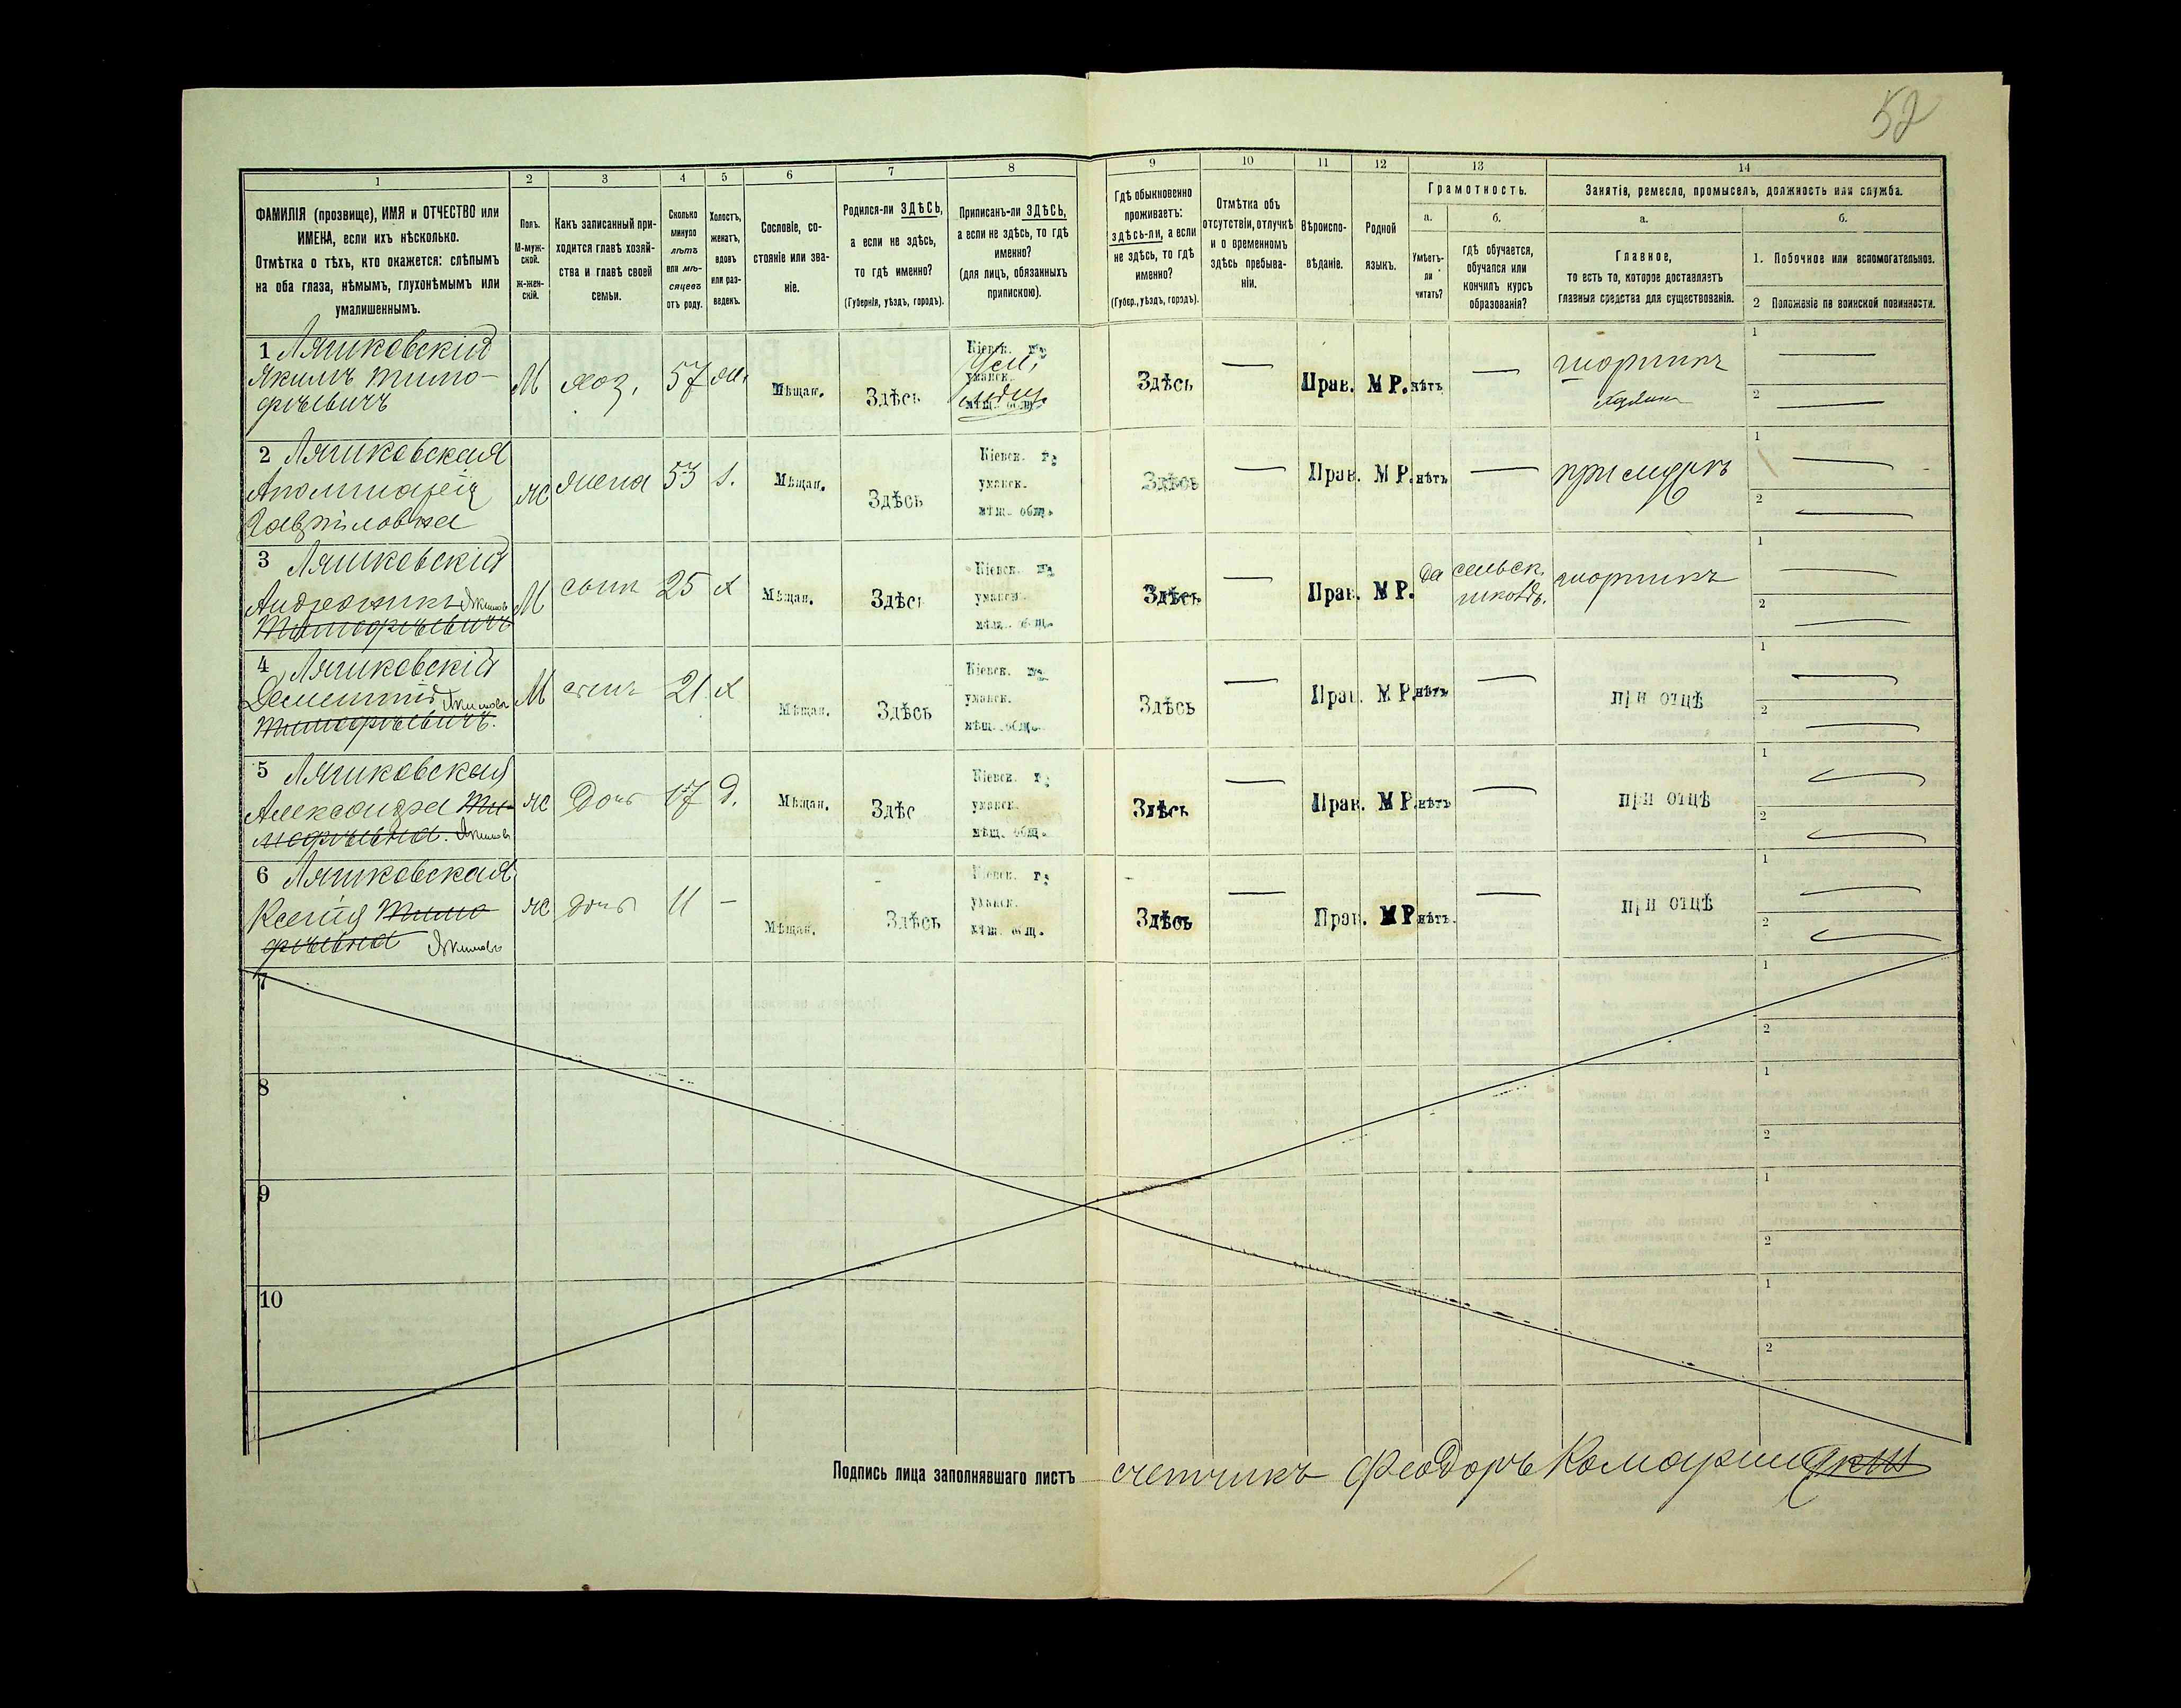 52
1 2 3 4 5 6 7 8 9 10 11 12 13 14
ФАМИЛІЯ (прозвище), ИМЯ и ОТЧЕСТВО или
ИМЕНА, если ихъ нѣсколько.
Отмѣтка о тѣхъ, кто окажется: слѣпымъ
на оба глаза, нѣмымъ, глухонѣмымъ или
умалишеннымъ.
Полъ.
М-муж-
ской.
ж-жен-
скій.
Какъ записанный при-
ходится главѣ хозяй-
ства и главѣ своей
семьи.
Сколько
минуло
лѣтъ
или мѣ-
сяцевъ
отъ роду.
Холостъ,
женатъ,
вдовъ
или раз-
веденъ.
Сословіе, со-
стояніе или зва-
ніе.
Родился-ли ЗДѢСЬ,
а если не здѣсь,
то гдѣ именно?
(Губернія, уѣздъ, городъ).
Приписанъ-ли ЗДѢСЬ,
а если не здѣсь, то гдѣ
именно?
(для лицъ, обязанныхъ
припискою).
Гдѣ обыкновенно
проживаетъ:
здѣсь-ли, а если
не здѣсь, то гдѣ
именно?
(Губер., уѣздъ, городъ).
Отмѣтка объ
отсутствіи, отлучкѣ
и о временномъ
здѣсь пребыва-
ніи.
Вѣроиспо-
вѣданіе.
Родной
языкъ.
Грамотность.
а.
Умѣетъ-
ли
читать?
б.
Гдѣ обучается,
обучался или
кончилъ курсъ
образованія?
Занятія, ремесло, промыселъ, должность или служба.
а.
Главное,
то есть то, которое доставляетъ
главныя средства для существованія.
б.
1. Побочное или вспомогательное.
2 Положеніе по воинской повинности.
1 Ляшковскій
Якимъ Тимо-
фѣевичъ
М хоз. 57 ж. Мѣщан. Здѣсь
Кіевск. г.
уманск.
мѣщ. общ.
Здѣсь — Прав. М Р. нѣтъ —
шорникъ
хозяинъ
1 —
2 —
2 Ляшковская
Аполинарія
Гавриловна
ж жена 53 з. Мѣщан. Здѣсь
Кіевск. г.
уманск.
мѣщ. общ.
Здѣсь — Прав. М Р. нѣтъ —
при мужѣ
1 —
2 —
3 Ляшковскій
Андроникъ Якимов
Тимофѣевичъ
М сынъ 25 х Мѣщан. Здѣсь
Кіевск. г.
уманск.
мѣщ. общ.
Здѣсь — Прав. М Р. да
сельск.
школѣ.
шорникъ
1 —
2 —
4 Ляшковскій
Дементій Якимовъ
Тимофѣевичъ.
М сынъ 21 х Мѣщан. Здѣсь
Кіевск. г.
уманск.
мѣщ. общ.
Здѣсь — Прав. М Р. нѣтъ — при отцѣ
1 —
2 —
5 Ляшковская
Александра Ти-
мофѣевна. Якимов
ж Дочь 17 д. Мѣщан. Здѣс
Кіевск. г.
уманск.
мѣщ. общ.
Здѣсь — Прав. М Р. нѣтъ — при отцѣ
1 —
2 —
6 Ляшковская
Ксенія Тимо
фѣевна Якимовъ
ж дочь 11 — Мѣщан. Здѣсь
Кіевск. г.
уманск.
мѣщ. общ.
Здѣсь — Прав. М Р нѣтъ. — при отцѣ
1 —
2 —
7
1
2
8
1
2
9
1
2
10
1
2
Подпись лица заполнявшаго листъ счетчикъ Феодоръ